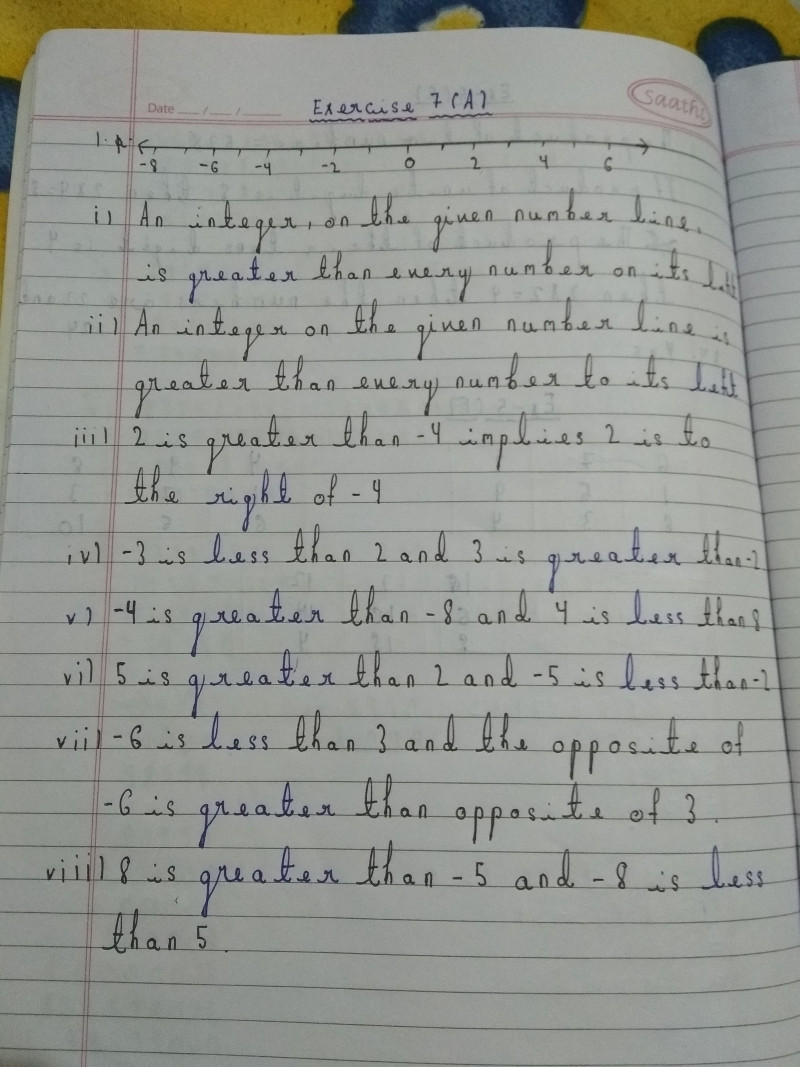 Date __/__/____ Exercise 7(A) Saathi
1. A-
-8 -6 -4 -2 0 2 4 6
i) An integer, on the given number line,
is greater than every number on its left
ii) An integer on the given number line is
greater than every number to its left
iii) 2 is greater than -4 implies 2 is to
the right of -4
iv) -3 is less than 2 and 3 is greater than -2
v) -4 is greater than -8 and 4 is less than 8
vi) 5 is greater than 2 and -5 is less than -2
vii) -6 is less than 3 and the opposite of
-6 is greater than opposite of 3.
viii) 8 is greater than -5 and -8 is less
than 5.